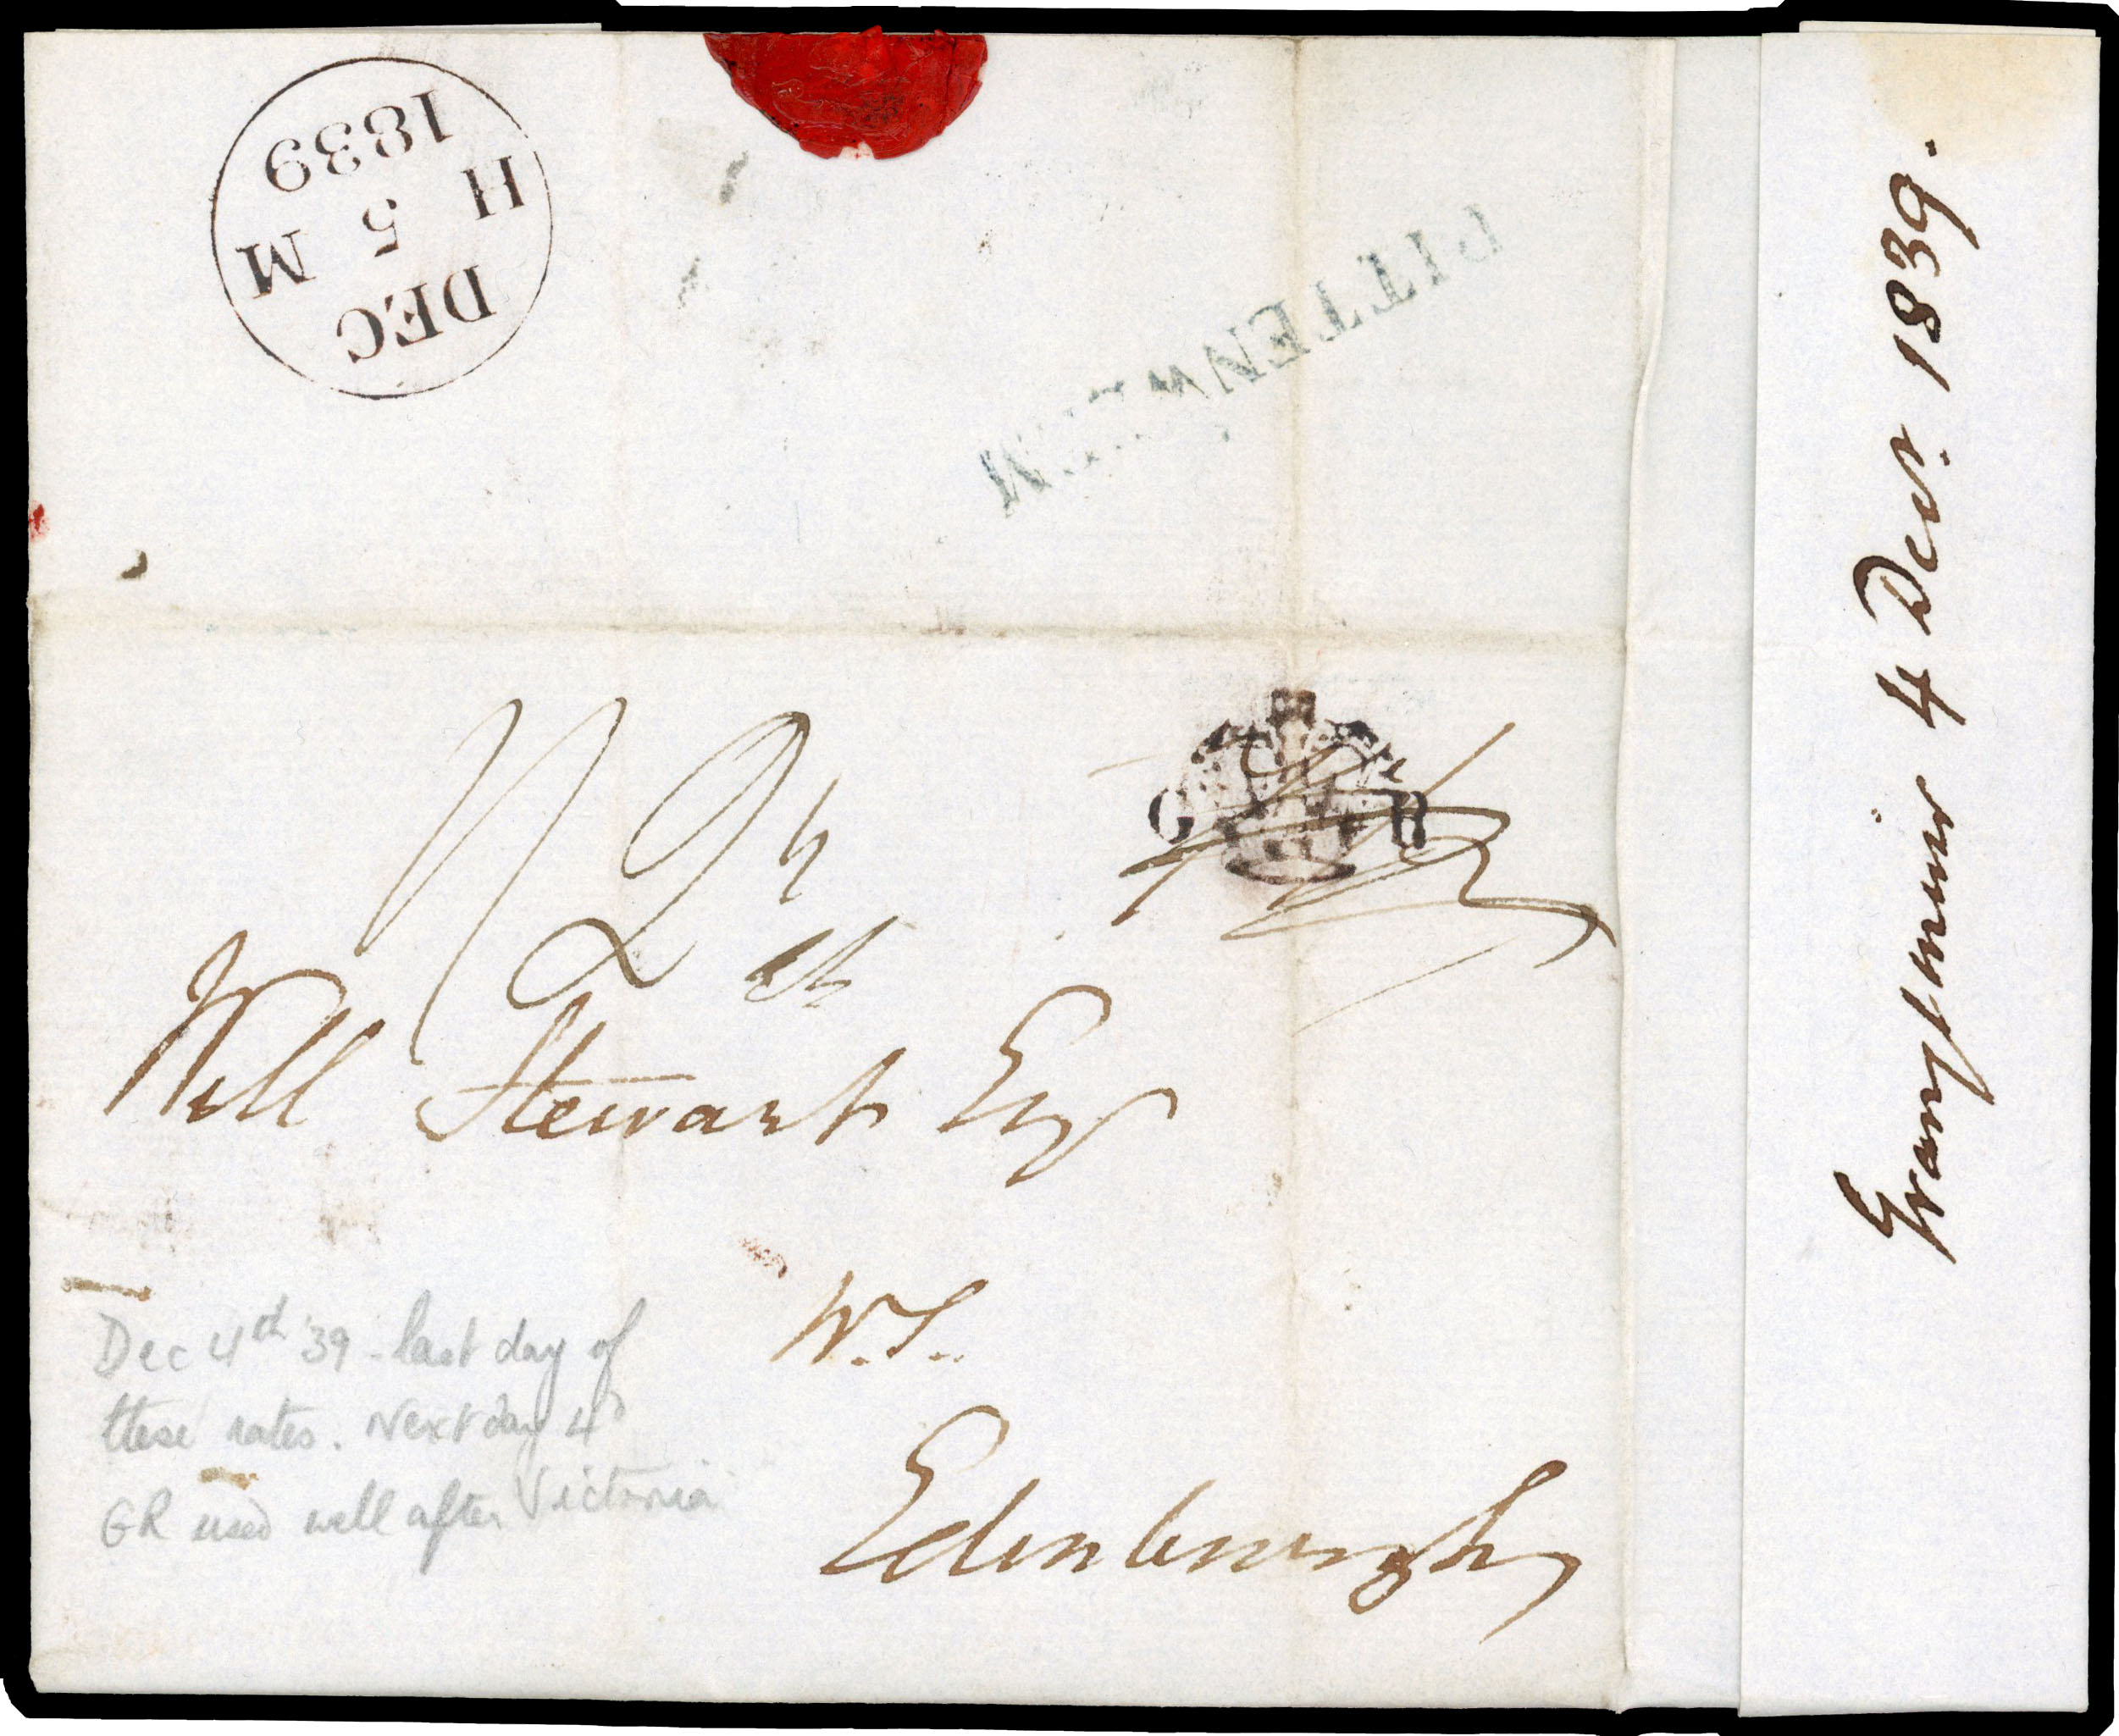 DEC
H 5 M
1839
PITTENWEEM
G R
Will Stewart Esq
W.S.
Edinburgh
Dec 4th '39 - last day of
these rates. Next day 4D
GR used well after Victoria
4 Decr. 1839.